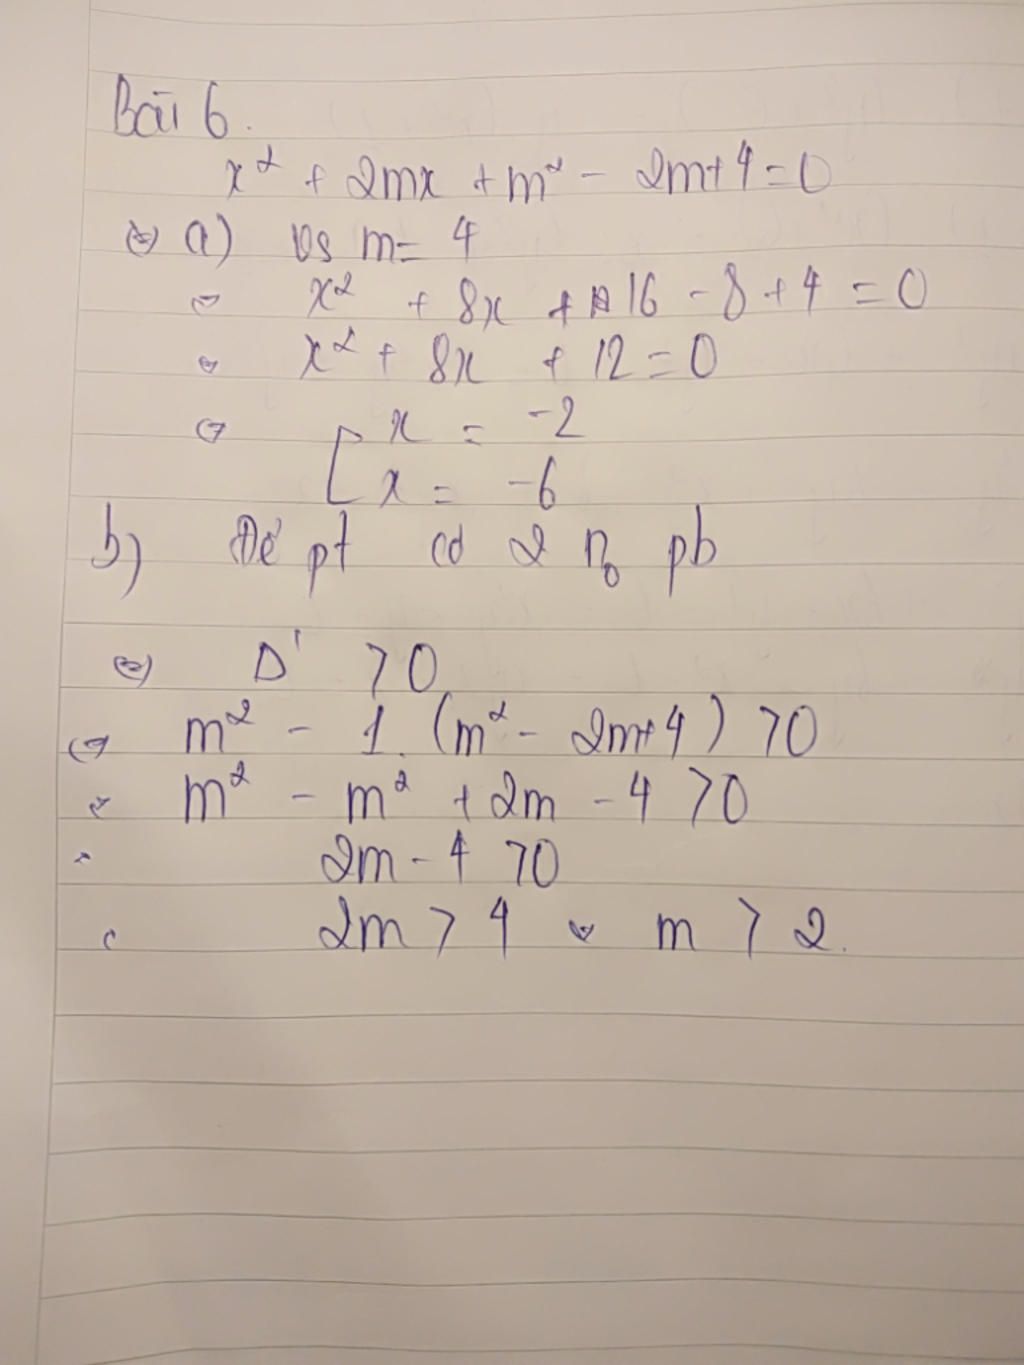 Bài 6.
x² + 2mx + m² - 2m + 4 = 0
⇔ a) Vs m = 4
⇔ x² + 8x + 16 - 8 + 4 = 0
⇔ x² + 8x + 12 = 0
⇔ [ x = -2
x = -6
b) Để pt có 2 n₀ pb
⇔ Δ' > 0
⇔ m² - 1. (m² - 2m + 4) > 0
⇔ m² - m² + 2m - 4 > 0
2m - 4 > 0
2m > 4 ⇔ m > 2.